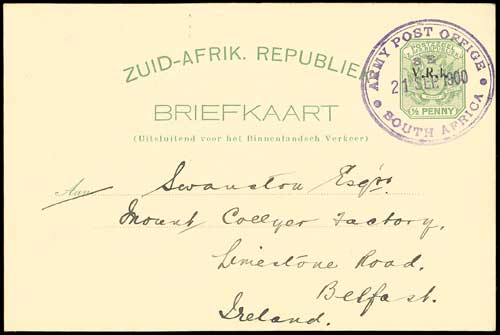 ZUID-AFRIK. REPUBLIEK
BRIEFKAART
(Uitsluitend voor het Binnenlandsch Verkeer)
ARMY POST OFFICE
V.R.I.
21 SEP 1900
½ PENNY
SOUTH AFRICA
Aan
Swanston Esqre
Mount Collyer Factory,
Limestone Road,
Belfast.
Ireland.